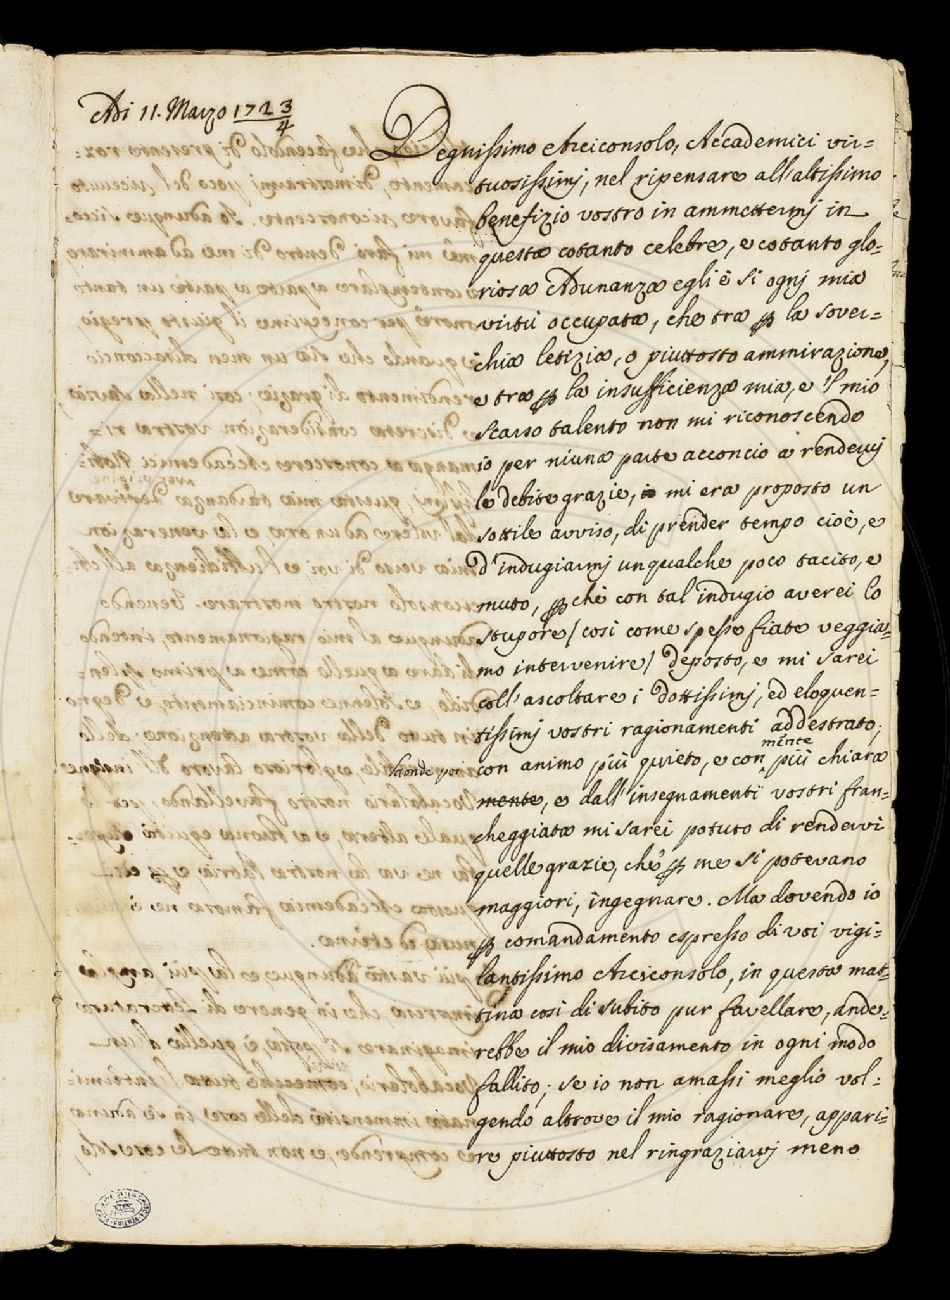 Adi 11. Marzo 172 3/4
Degnissimo Arciconsolo, Accademici vir=
tuosissimj, nel ripensare all'altissimo
benefizio vostro in ammettermj in
questa cotanto celebre, e cotanto glo=
riosa Adunanza egli è sì ognj mia
virtù occupata, che tra p la sover=
chia letizia, o piuttosto ammirazione,
e tra p la insufficienza mia, e 'l mio
scarso talento non mi riconoscendo
io per niuna parte acconcio a rendervj
le debite grazie, mi era proposto un
sottile avviso, di prender tempo cioè, e
d'indugiarmj unqualche poco tacito, e
muto, p chè con tal'indugio averei lo
stupore / così come spesse fiate veggia=
mo intervenire / deposto, e mi sarei
coll'ascoltare i dottissimj, ed eloquen=
tissimj vostri ragionamenti addestrato;
mente
Laonde poi con animo più quieto, e con più chiara
mente, e dall'insegnamenti vostri fran=
cheggiata mi sarei potuto di rendervi
quelle grazie, che p me si potevano
maggiori, ingegnare. Ma dovendo io
p comandamento espresso di voi vigi=
lantissimo Arciconsolo, in questa mat=
tina così di subito pur favellare, ande=
rebbe il mio divisamento in ogni modo
fallito; se io non amassi meglio vol=
gendo altrove il mio ragionare, appari=
re piuttosto nel ringraziarvj meno